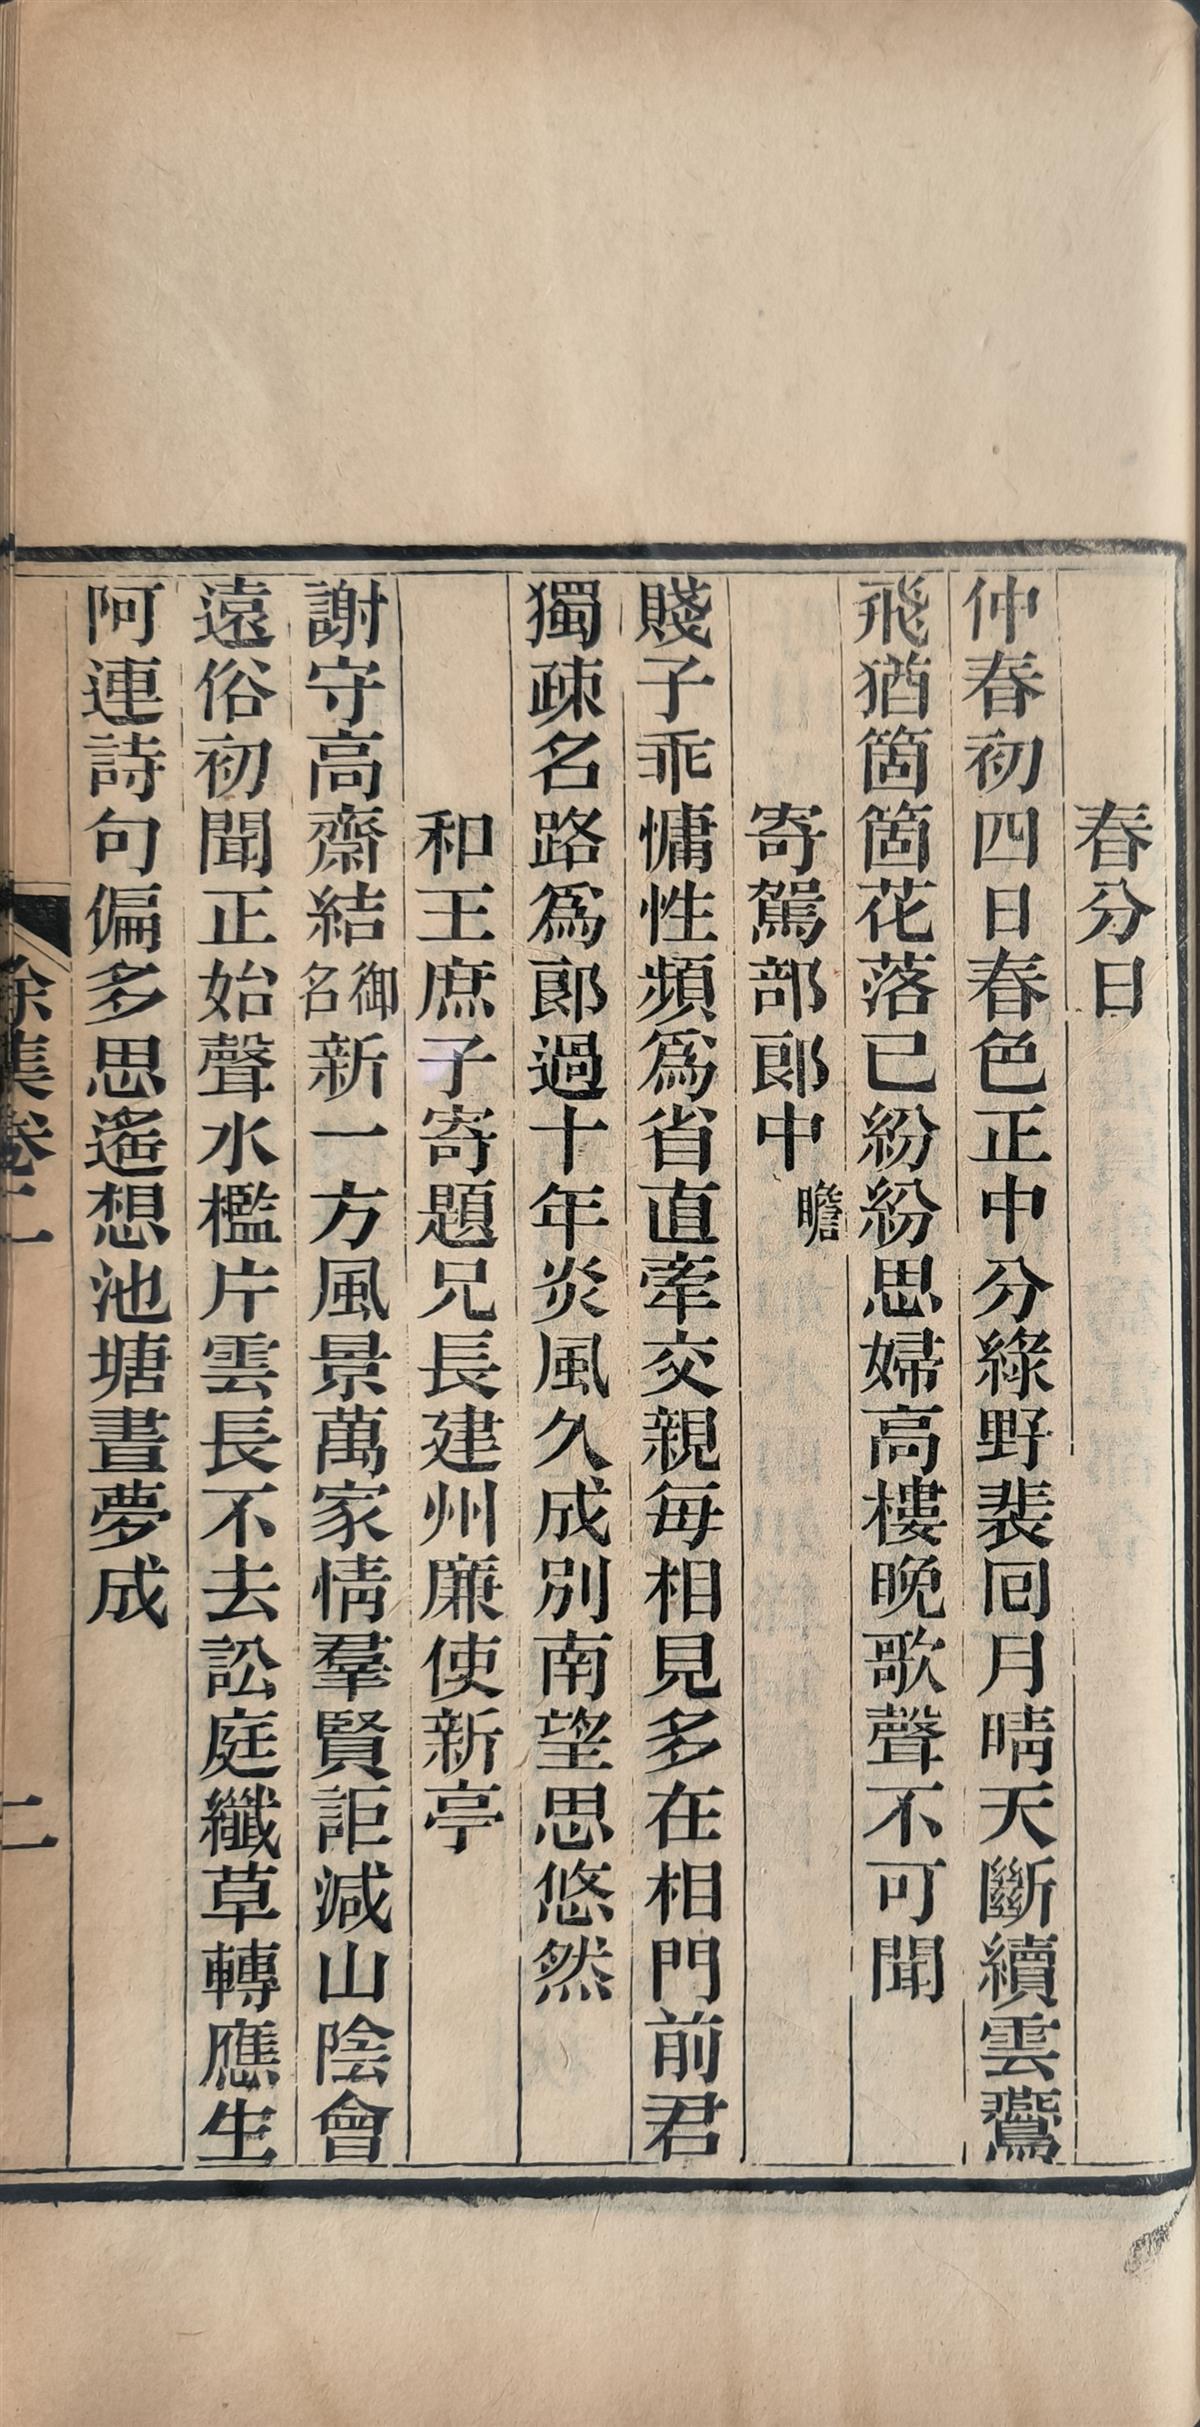 春分日
仲春初四日春色正中分綠野裴囘月晴天斷續雲鷰
飛猶箇箇花落已紛紛思婦高樓晚歌聲不可聞
寄駕部郎中瞻
賤子乖慵性頻爲省直牽交親每相見多在相門前君
獨疎名路爲郎過十年炎風久成別南望思悠然
和王庶子寄題兄長建州廉使新亭
謝守高齋結御名新一方風景萬家情羣賢詎減山陰會
遠俗初聞正始聲水檻片雲長不去訟庭纖草轉應生
阿連詩句偏多思遙想池塘晝夢成
徐集卷二
二